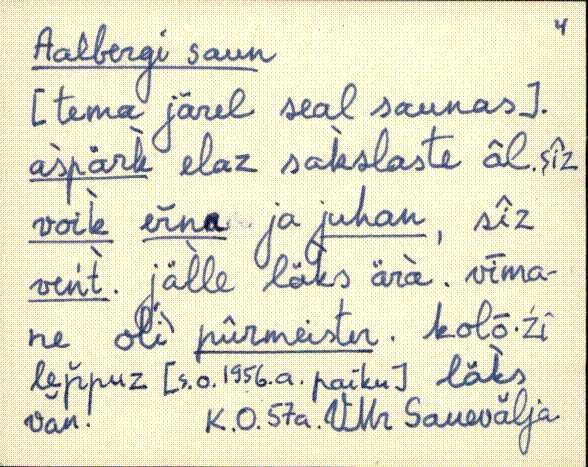 4
Aalbergi saun
[tema järel seal saunas].
aśpärk̀ elaz sak̀slaste âl. śîz
voik̀ eřna ja juhan, sîz
veńt̀. jälle läk̀s ärà. vīma-
ne olì pûrmeister. kolō·źî
lep̆puz [s.o. 1956.a. paiku] läk̀s
vän! K.O. 57a. VMr Sauevälja